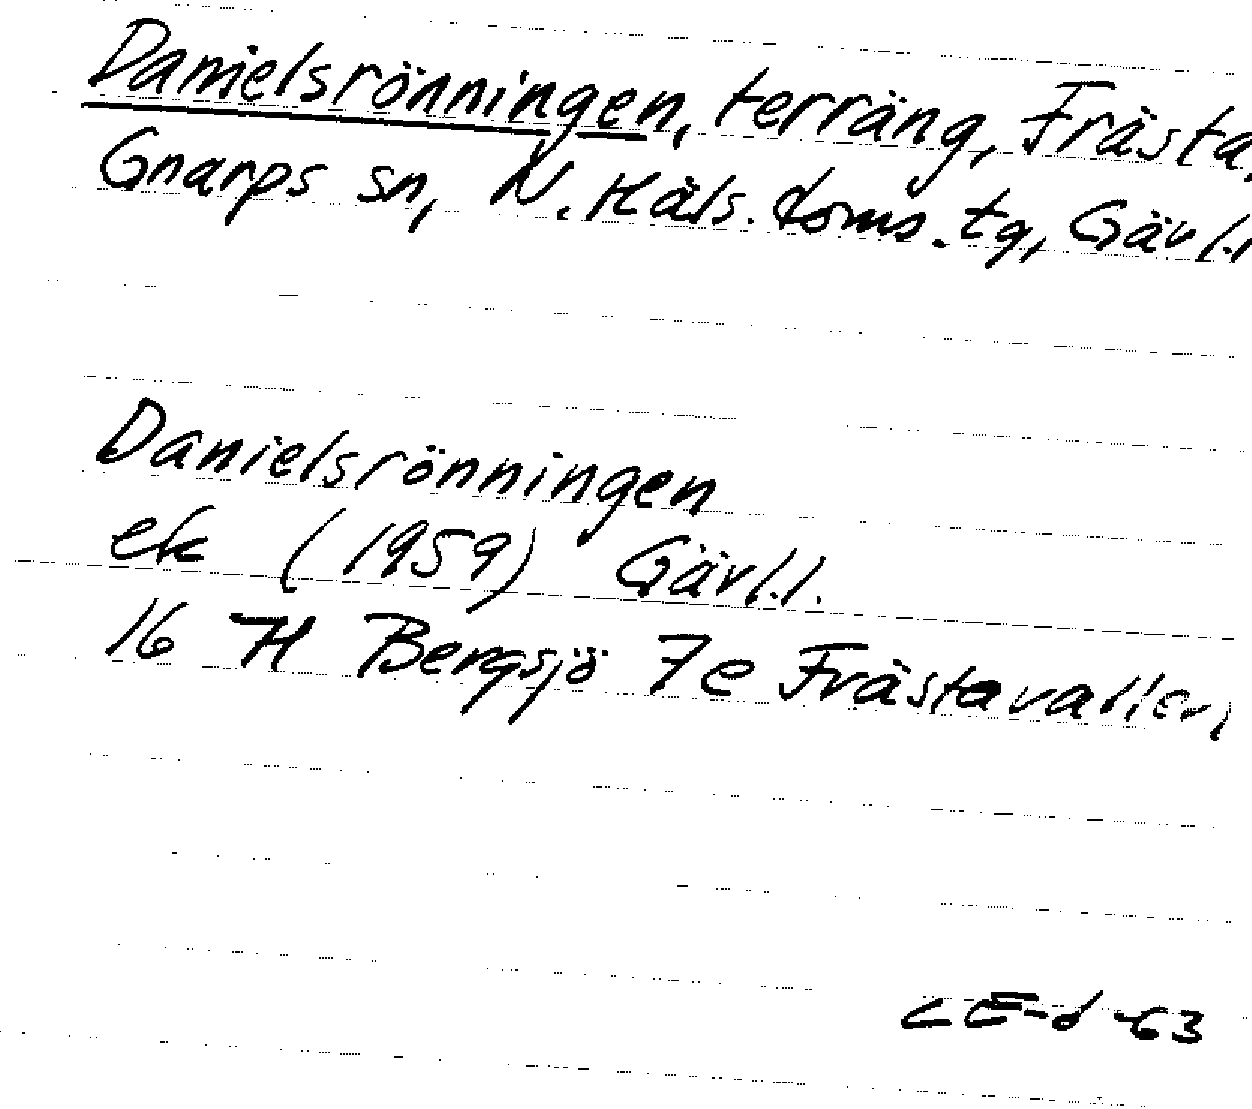 Danielsrönningen, terräng, Frästa,
Gnarps sn, N. Häls. doms. tg, Gävl.l
Danielsrönningen
ek (1959) Gävl.l.
16 H Bergsjö 7e Frästavallen,
CE-d -63